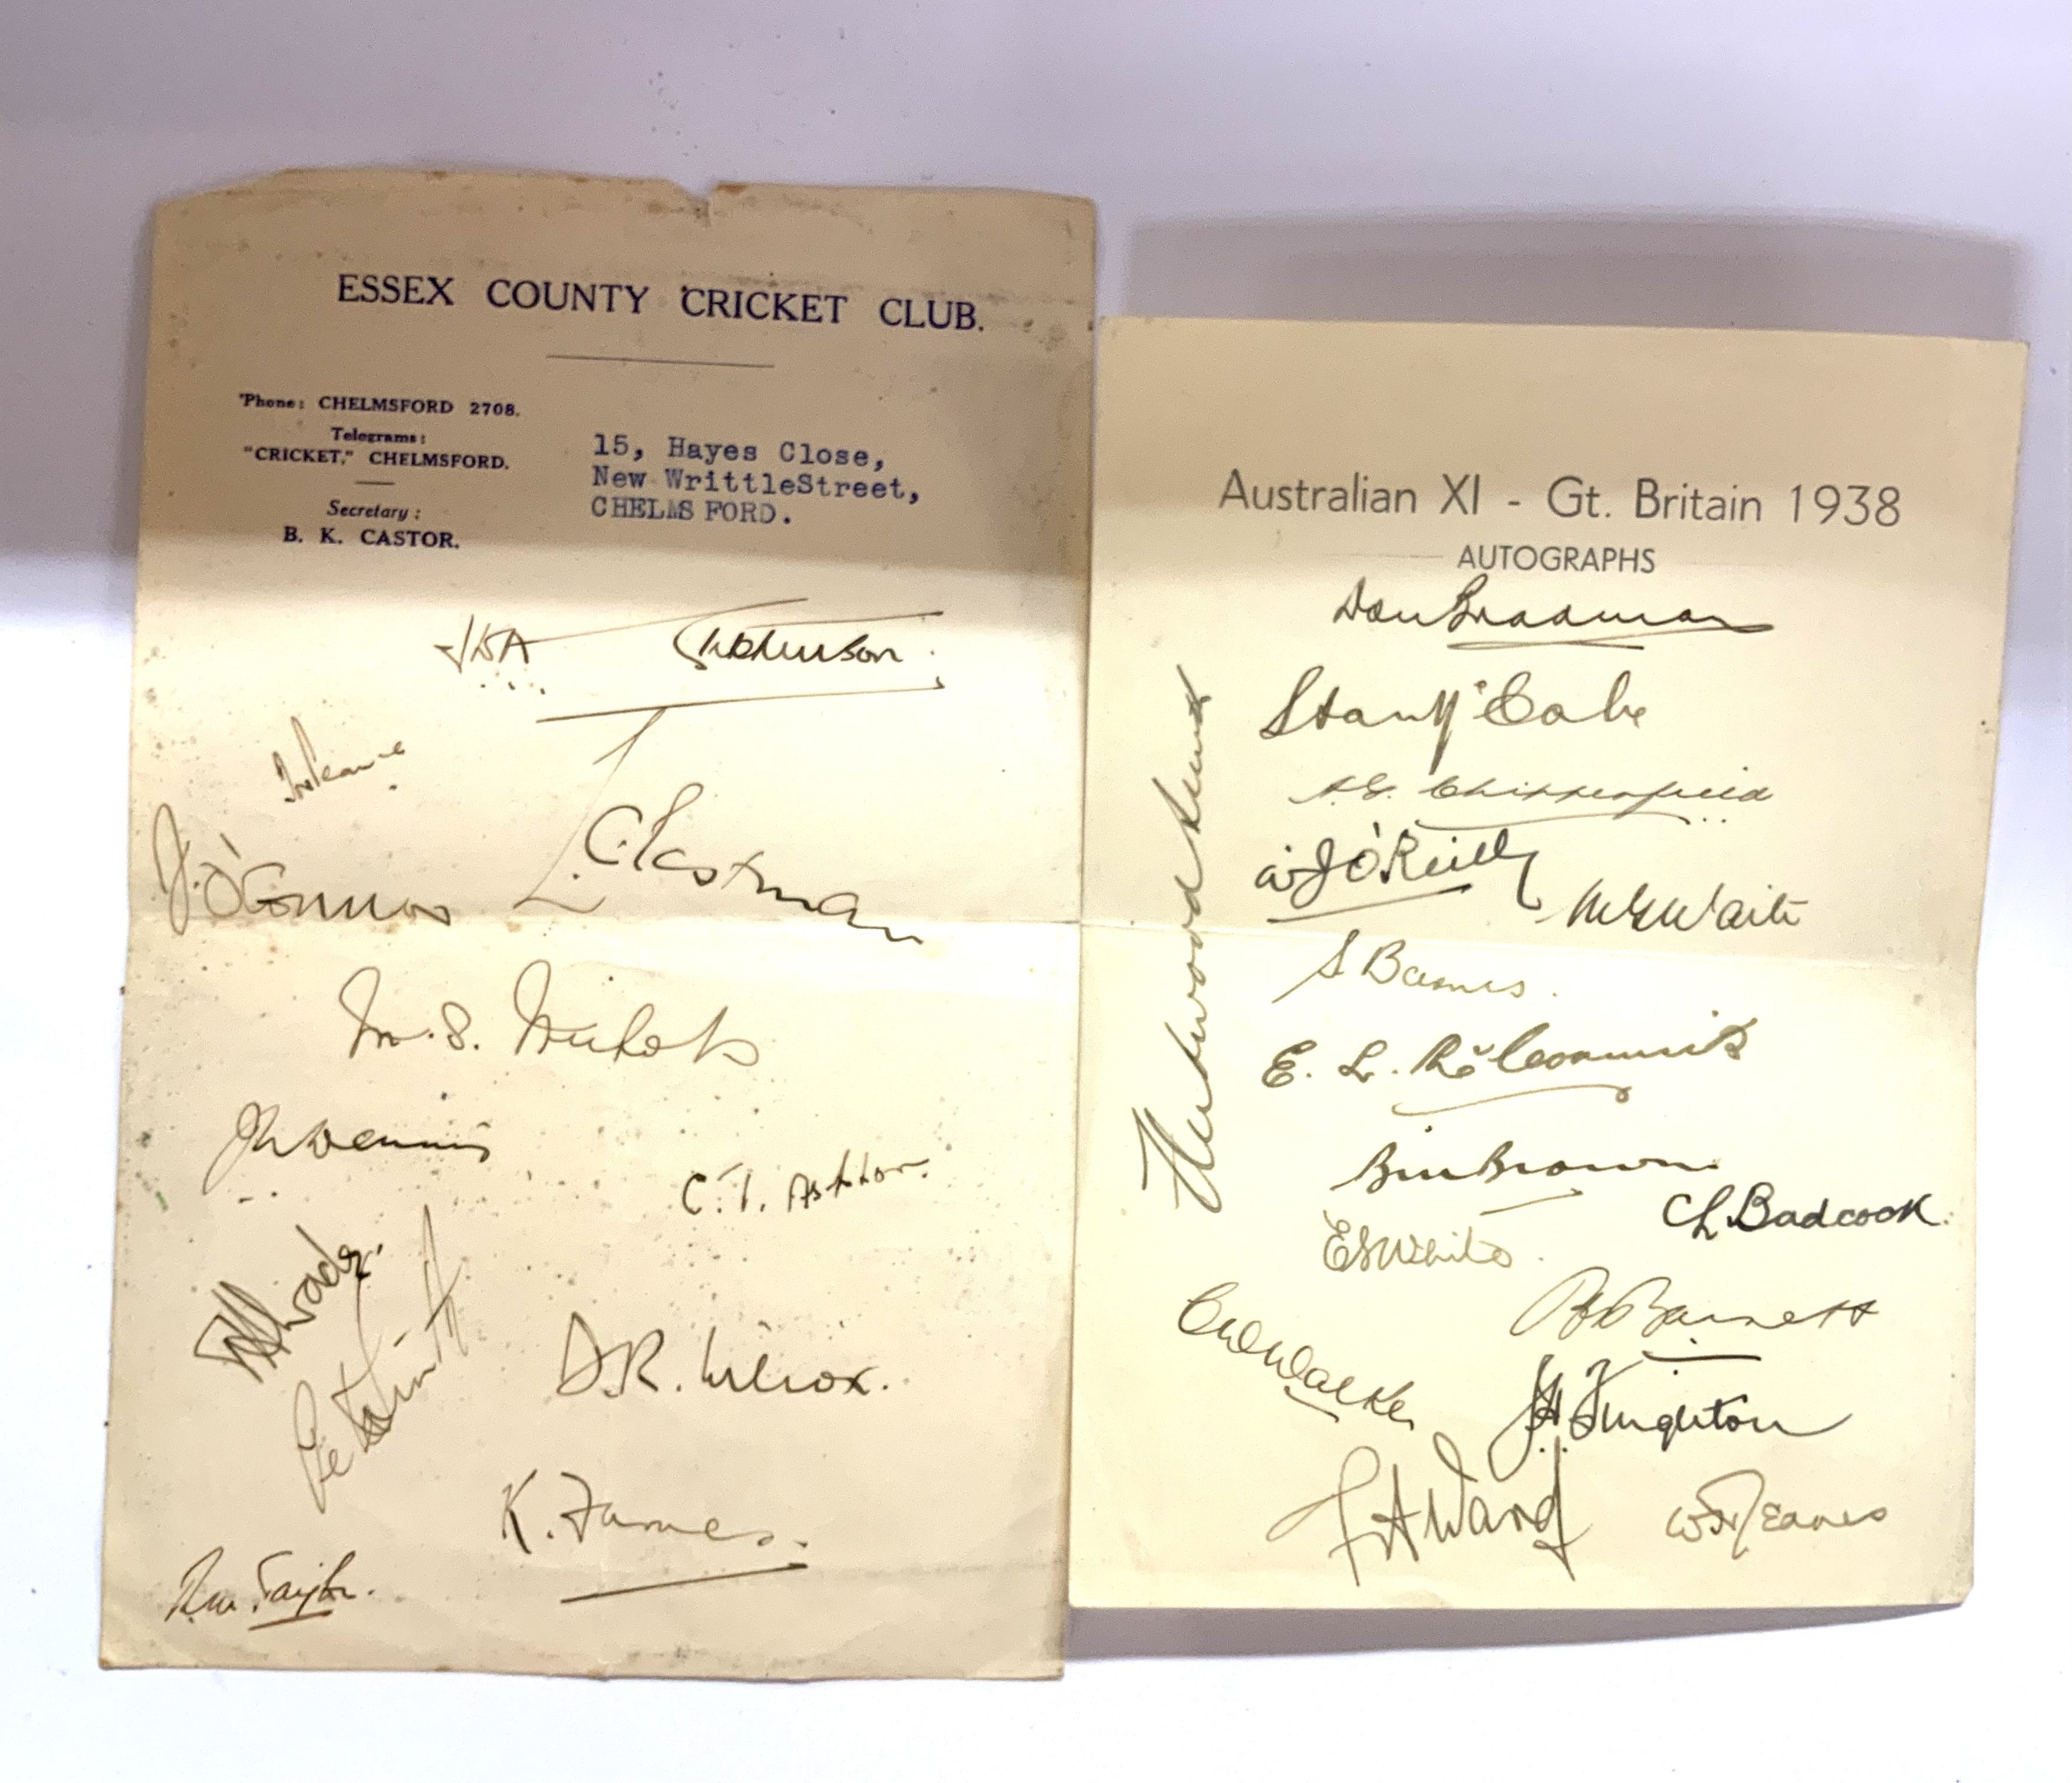 ESSEX COUNTY CRICKET CLUB.
'Phone: CHELMSFORD 2708.
Telegrams:
"CRICKET," CHELMSFORD.
Secretary:
B. K. CASTOR.
15, Hayes Close,
New WrittleStreet,
CHELMS FORD.
J. O'Connor
L. C. Eastman
M. S. Nichols
C. T. Ashton.
D.R. Wilcox.
K. James.
R.M. Taylor.
Australian XI - Gt. Britain 1938
AUTOGRAPHS
Don Bradman
Stan McCabe
A.G. Chipperfield
W J O'Reilly
M G Waite
S Barnes.
E. L. McCormick
Bill Brown
C L Badcock.
E S White.
B A Barnett
C W Walker
J H Fingleton
F A Ward
W H Jeanes
Fleetwood Smith